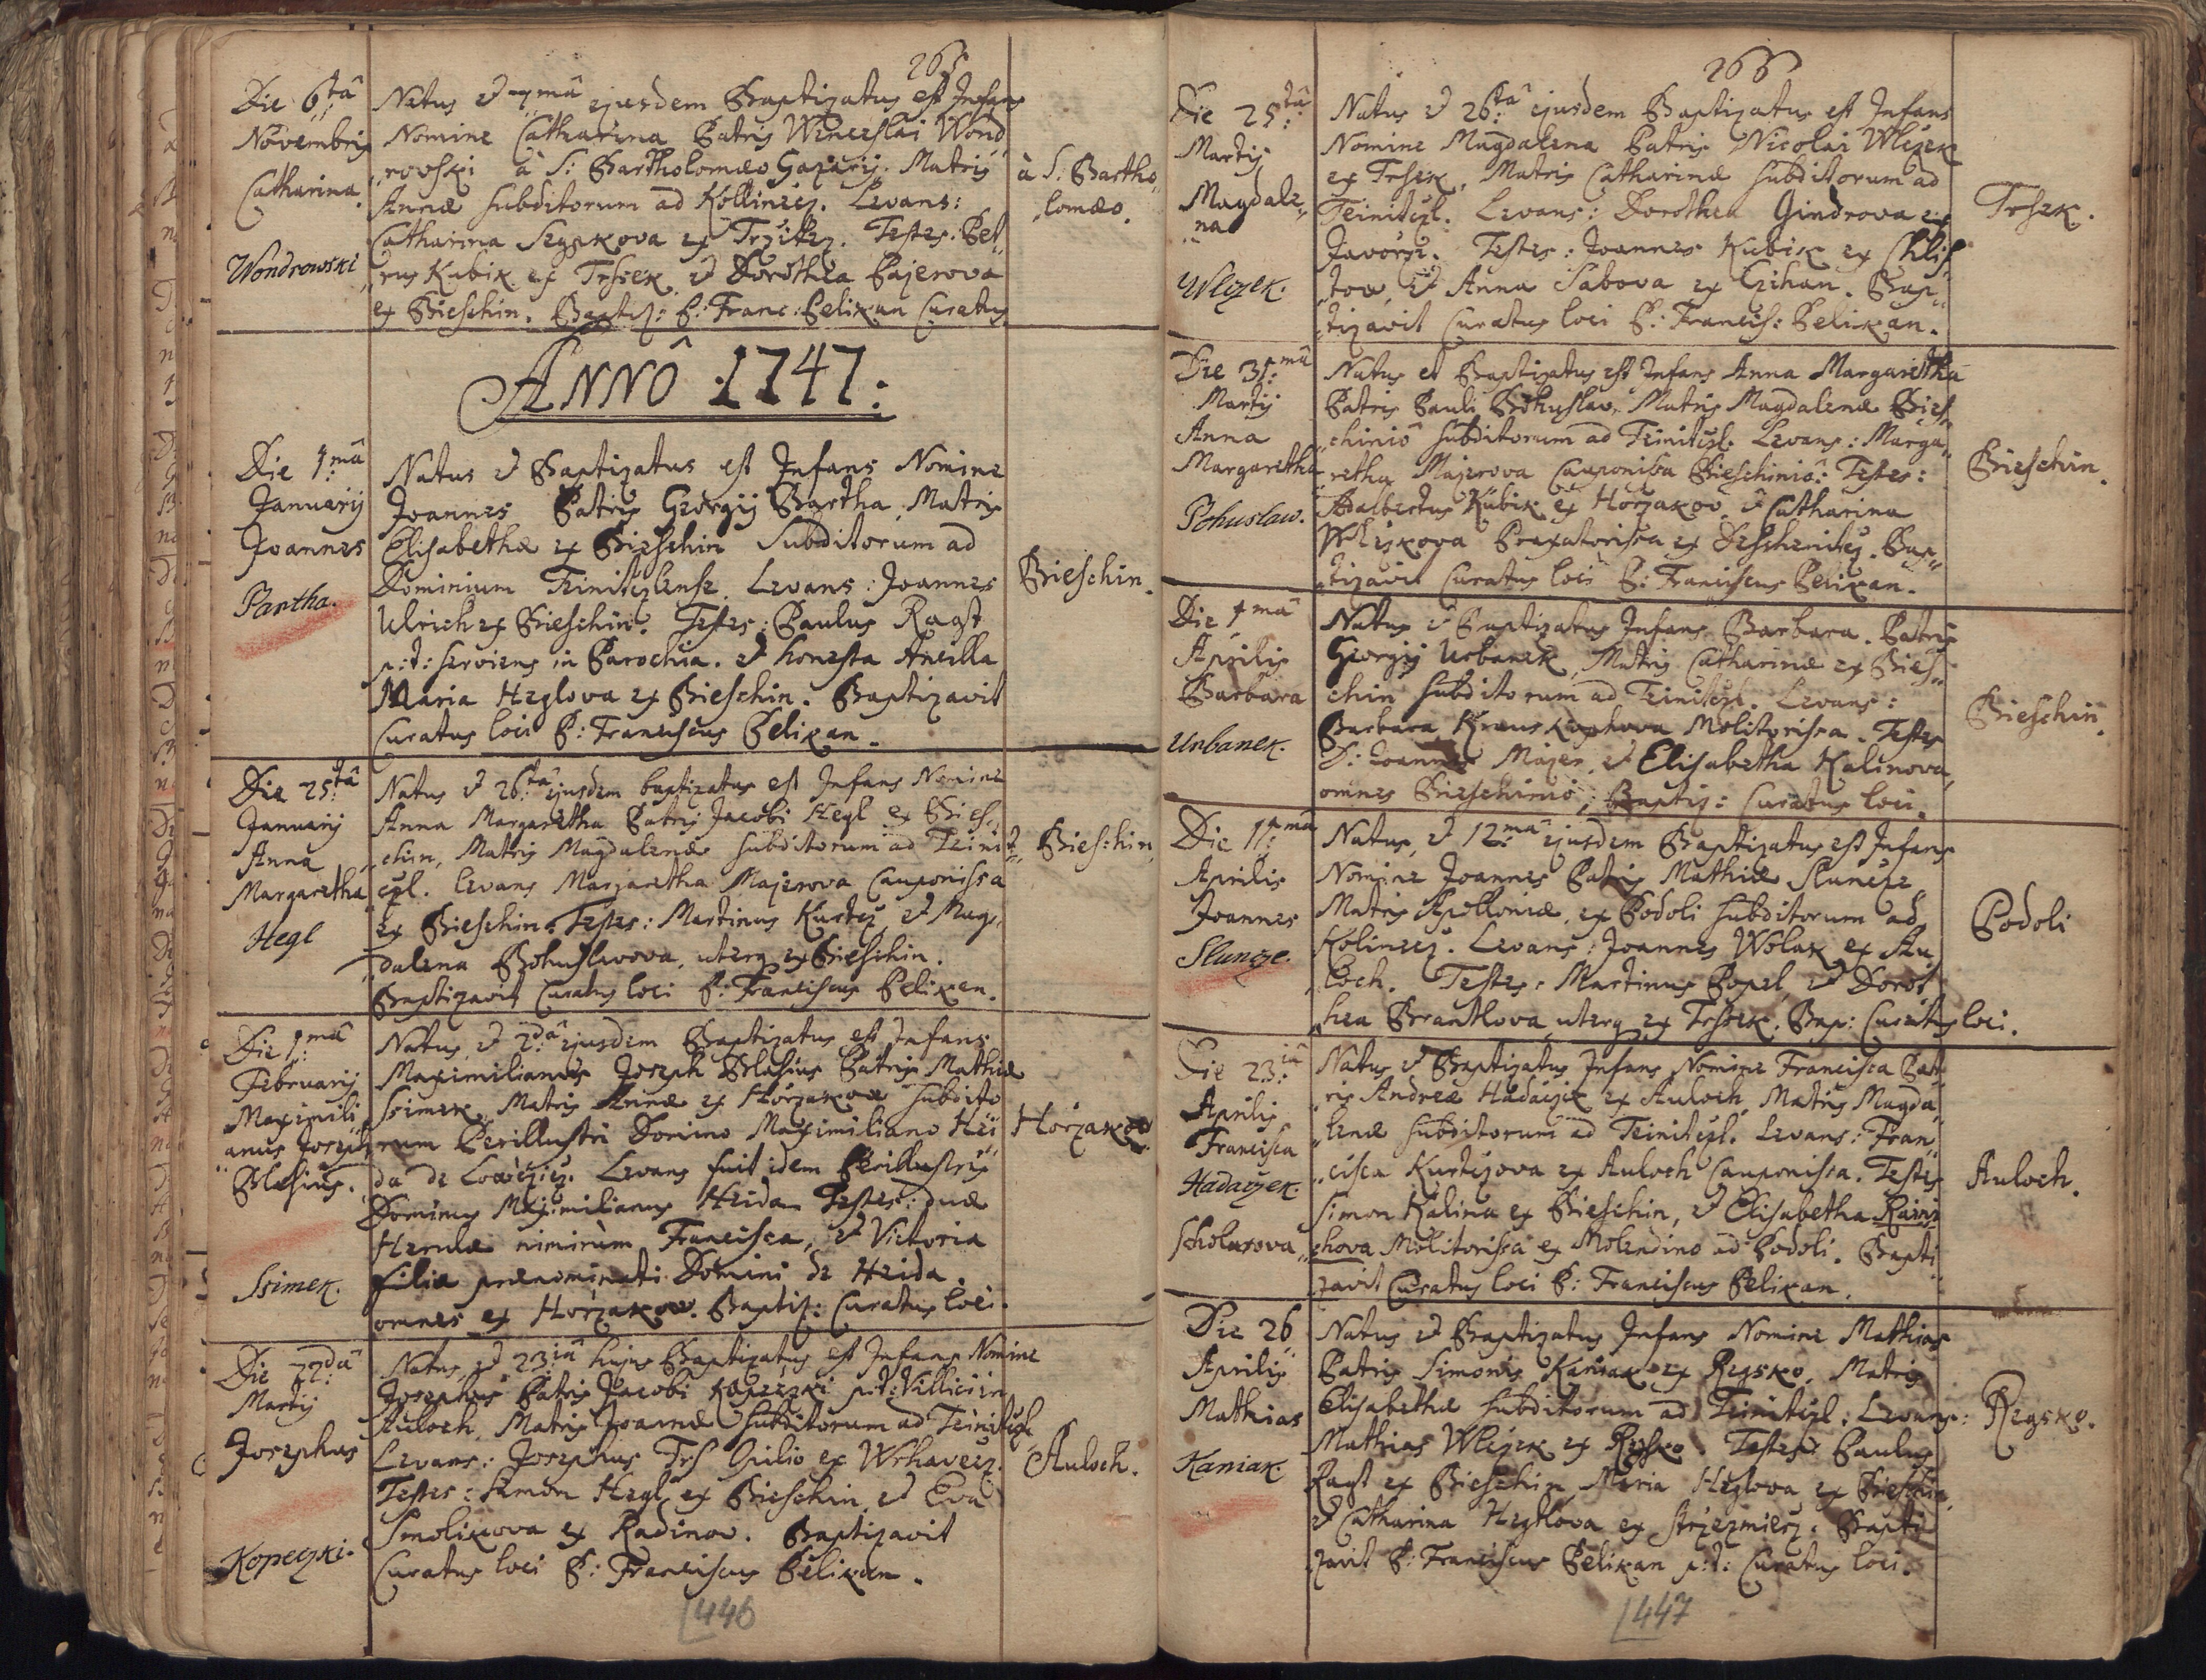 265
Die 6tâ
Novembris
Catharina.
Wondrowski
Natus et 7mâ ejusdem Baptizatus est Infans
Nomine Catharina Patris Wenceslai Wond„
„rovski à S: Bartholomæo Matris
Annæ subditorum ad Kollinecz. Levans:
Catharina ex Testes: Pet„
„rus Kubik ex Trssek, et Dorothea Pajerova
ex Bieschin. Baptiz: P: Franc: Pelikan Curatus
à S. Bartho„
„lomæo.
ANNÔ 1747.
Die 1mâ
Januarij
Joannes
Partha.
Natus et Baptizatus est Infans Nomine
Joannes Patris Georgij Bartha, Matris
Elisabethæ ex Bieschin Subditorum ad
Dominium Teinitzlense. Levans: Joannes
Ulrich ex Bieschin. Testes: Paulus Ragst
p:t: serviens in Parochia. et honesta Ancilla
Maria Heglova ex Bieschin. Baptizavit
Curatus loci P: Franciscus Pelikan.
Bieschin.
Die 25tâ
Januarij
Anna
Margaretha
Hegl
Natus et 26tâ ejusdem baptizatus est Infans Nomine
Anna Margaretha Patris Jacobi Hegl ex Bies„
„chin, Matris Magdalenæ subditorum ad Teinit„
czl. Levans Margaretha Majerova Cauponissa
ex Bieschin. Testes: Martinus Kurtz, et Mag„
dalena Bohuslavova, uterq ex Bieschin.
Baptizavit Curatus loci P: Franciscus Pelikan.
Bieschin
Die 1mâ
Februarij
Maximili„
„anus Joseph
Blasius.
Ssimek.
Natus, et 2dâ ejusdem Baptizatus est Infans
Maximilianus Joseph Blasius Patris Mathiæ
Ssimek, Matris Annæ ex Horzakow subdito
rum Perillustri Domino Maximiliano Hei„
da de Levans fuit idem Perillustris
Dominus Maximilianus Heida. Testes: duæ
Herulæ nimirùm Francisca, et Victoria
filiæ prænominati Domini de Heida.
omnes ex Horzakow. Baptiz: Curatus loci.
Horzakow
Die 22dâ
Martij
Josephus
Kopeczki.
Natus, et 23iâ hujus Baptizatus est Infans Nomine
Josephus Patris Jacobi Kopeczki p:t: Villici in
Auloch, Matris Joannæ subditorum ad Teinitzl.
Levans: Josephus ex
Testes: Simon Hegl ex Bieschin, et Eva
Smolikova ex Radinov. Baptizavit
Curatus loci P: Franciscus Pelikan.
Auloch.
446
266
Die 25tâ
Martij
Magdale„
„na
Wlczek.
Natus et 26tâ ejusdem Baptizatus est Infans
Nomine Magdalena Patris Nicolai Wlczek
ex Trsek, Matris Catharinæ subditorum ad
Teinitczl. Levans: Dorothea Gindrova ex
Javorze. Testes: Joannes Kubik ex Chlis„
„tow, et Anna Sabova ex Czihan. Bap„
„tizavit Curatus loci P: Francis: Pelikan.
Trsek.
Die 31mâ
Martij
Anna
Margaretha
Pohuslaw.
Natus et Baptizatus est Infans Anna Margaretha
Patris Pauli Bohuslav, Matris Magdalenæ Bies„
„chiniô subditorum ad Teinitczl. Levans: Marga„
„retha Majerova Cauponissa Bieschiniô. Testes:
Adalbertus Kubik ex Horzakov, et Catharina
Wlczkova Braxatorissa ex Bap„
„tizavit Curatus loci P: Franciscus Pelikan.
Bieschin.
Die 1mâ
Aprilis
Barbara
Urbanek.
Natus et Baptizatus Infans Barbara. Patris
Georgij Urbanek, Matris Catharinæ ex Bies„
chin subditorum ad Teinitczl. Levans:
Barbara Krauskophova Molitorissa. Testes
D: Joannes Majer, et Elisabetha Kalinova
omnes Bieschiniô, Baptiz: Curatus loci.
Bieschin.
Die 11mâ
Aprilis
Joannes
Sluncze.
Natus, et 12mâ ejusdem Baptizatus est Infans
Nomine Joannes Patris Mathiæ Sluncze,
Matris Apolloniæ, ex Podoli subditorum ad
Kolinecz. Levans: Joannes Wolak ex Au„
loch. Testes: Martinus Popel, et Dorot
„hea Brantlova uterq ex Trssek. Bap: Curatus loci.
Podoli
Die 23iâ
Aprilis
Francisca
Hadaczek.
Scholarova
Natus et Baptizatus Infans Nomine Francisca Pat„
„ris Andreæ Hadaczek ex Auloch, Matris Magda„
„lenæ subditorum ad Teinitczl. Levans: Fran„
„cisca Kurtzova ex Auloch Cauponissa. Testes
Simon Kalina ex Bieschin, et Elisabetha
chova Molitorissa ex Molendino ad Podoli. Bapti„
zavit Curatus loci P: Franciscus Pelikan.
Auloch.
Die 26
Aprilis
Mathias
Kaniak.
Natus et Baptizatus Infans Nomine Mathias
Patris Simonis Kaniak ex Regsko, Matris
Elisabethæ subditorum ad Teinitczl. Levans:
Mathias Wlczek ex Regsko. Testes: Paulus
Ragst ex Bieschin, Maria Heglova ex Bieschin,
et Catharina Heglova ex Bapti„
zavit P: Franciscus Pelikan p:t: Curatus loci.
Regsko.
447